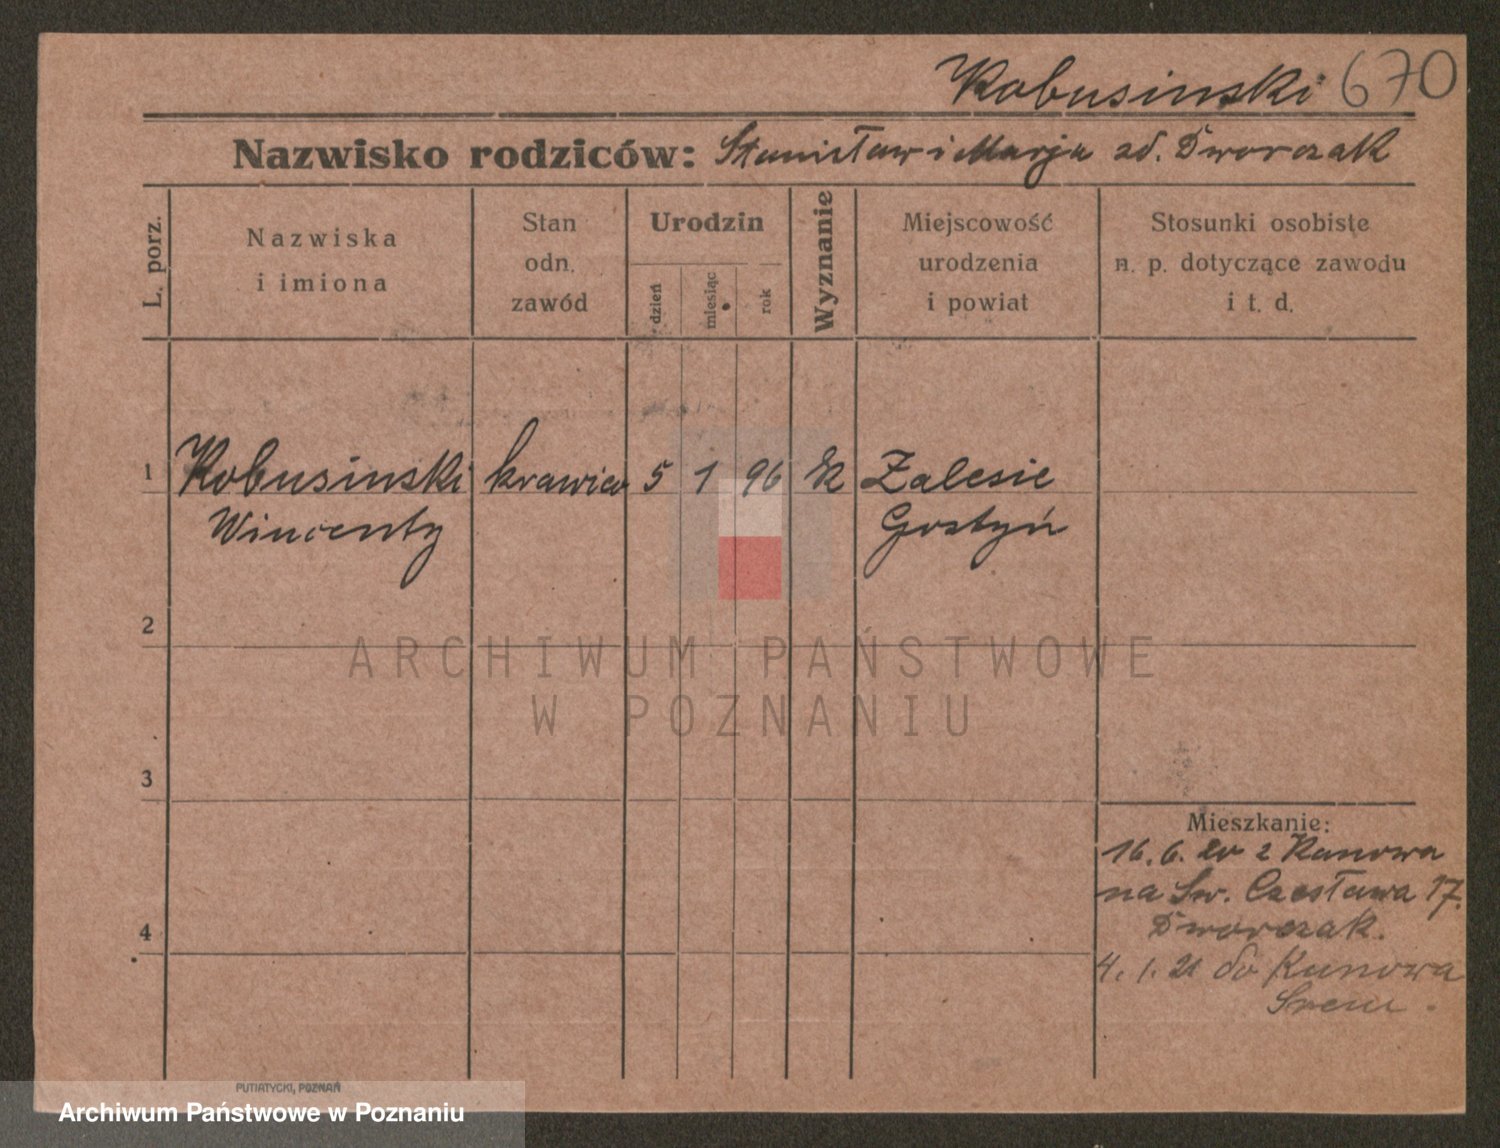 Kobusinski 670
Nazwisko rodziców: Stanisław i Marja zd. Dworczak
L. porz.
Nazwiska
i imiona
Stan
odn.
zawód
Urodzin
dzień
miesiąc
rok
Wyznanie
Miejscowość
urodzenia
i powiat
Stosunki osobiste
n. p. dotyczące zawodu
i t. d.
1 Kobusinski krawiec 5 1 96 k Zalesie
Wincenty Gostyń
2
ARCHIWUM PAŃSTWOWE
W POZNANIU
3
Mieszkanie:
16. 6. 20 z Kunowa
na Św. Czesława 17.
Dworczak.
4
4. 1. 21 do Kunowa
Śrem.
PUTIATYCKI, POZNAŃ
Archiwum Państwowe w Poznaniu